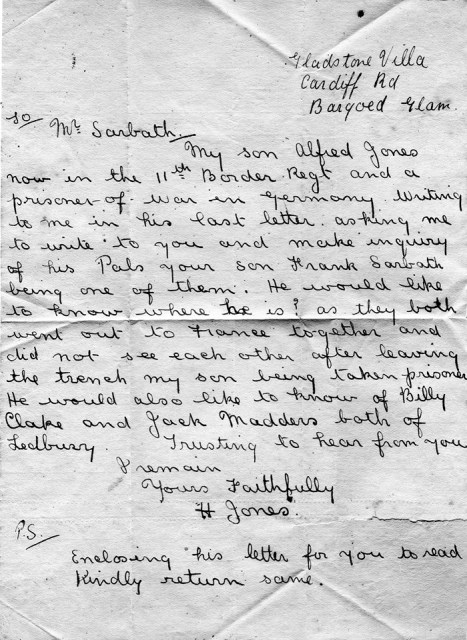 Gladstone Villa
Cardiff Rd
Bargoed Glam.
To
Mr. Sarbath.
My son Alfred Jones
now in the 11th Border Regt and a
prisoner-of-war in Germany. Writing
to me in his last letter. asking me
to write to you and make inquiry
of his Pals your son Frank Sarbath
being one of them. He would like
to know where he is? as they both
went out to France together and
did not see each other after leaving
the trench my son being taken prisoner
He would also like to know of Billy
Clake and Jack Madders both of
Ledbury. Trusting to hear from you
I remain
Yours Faithfully
H Jones.
P.S.
Enclosing his letter for you to read
Kindly return same.